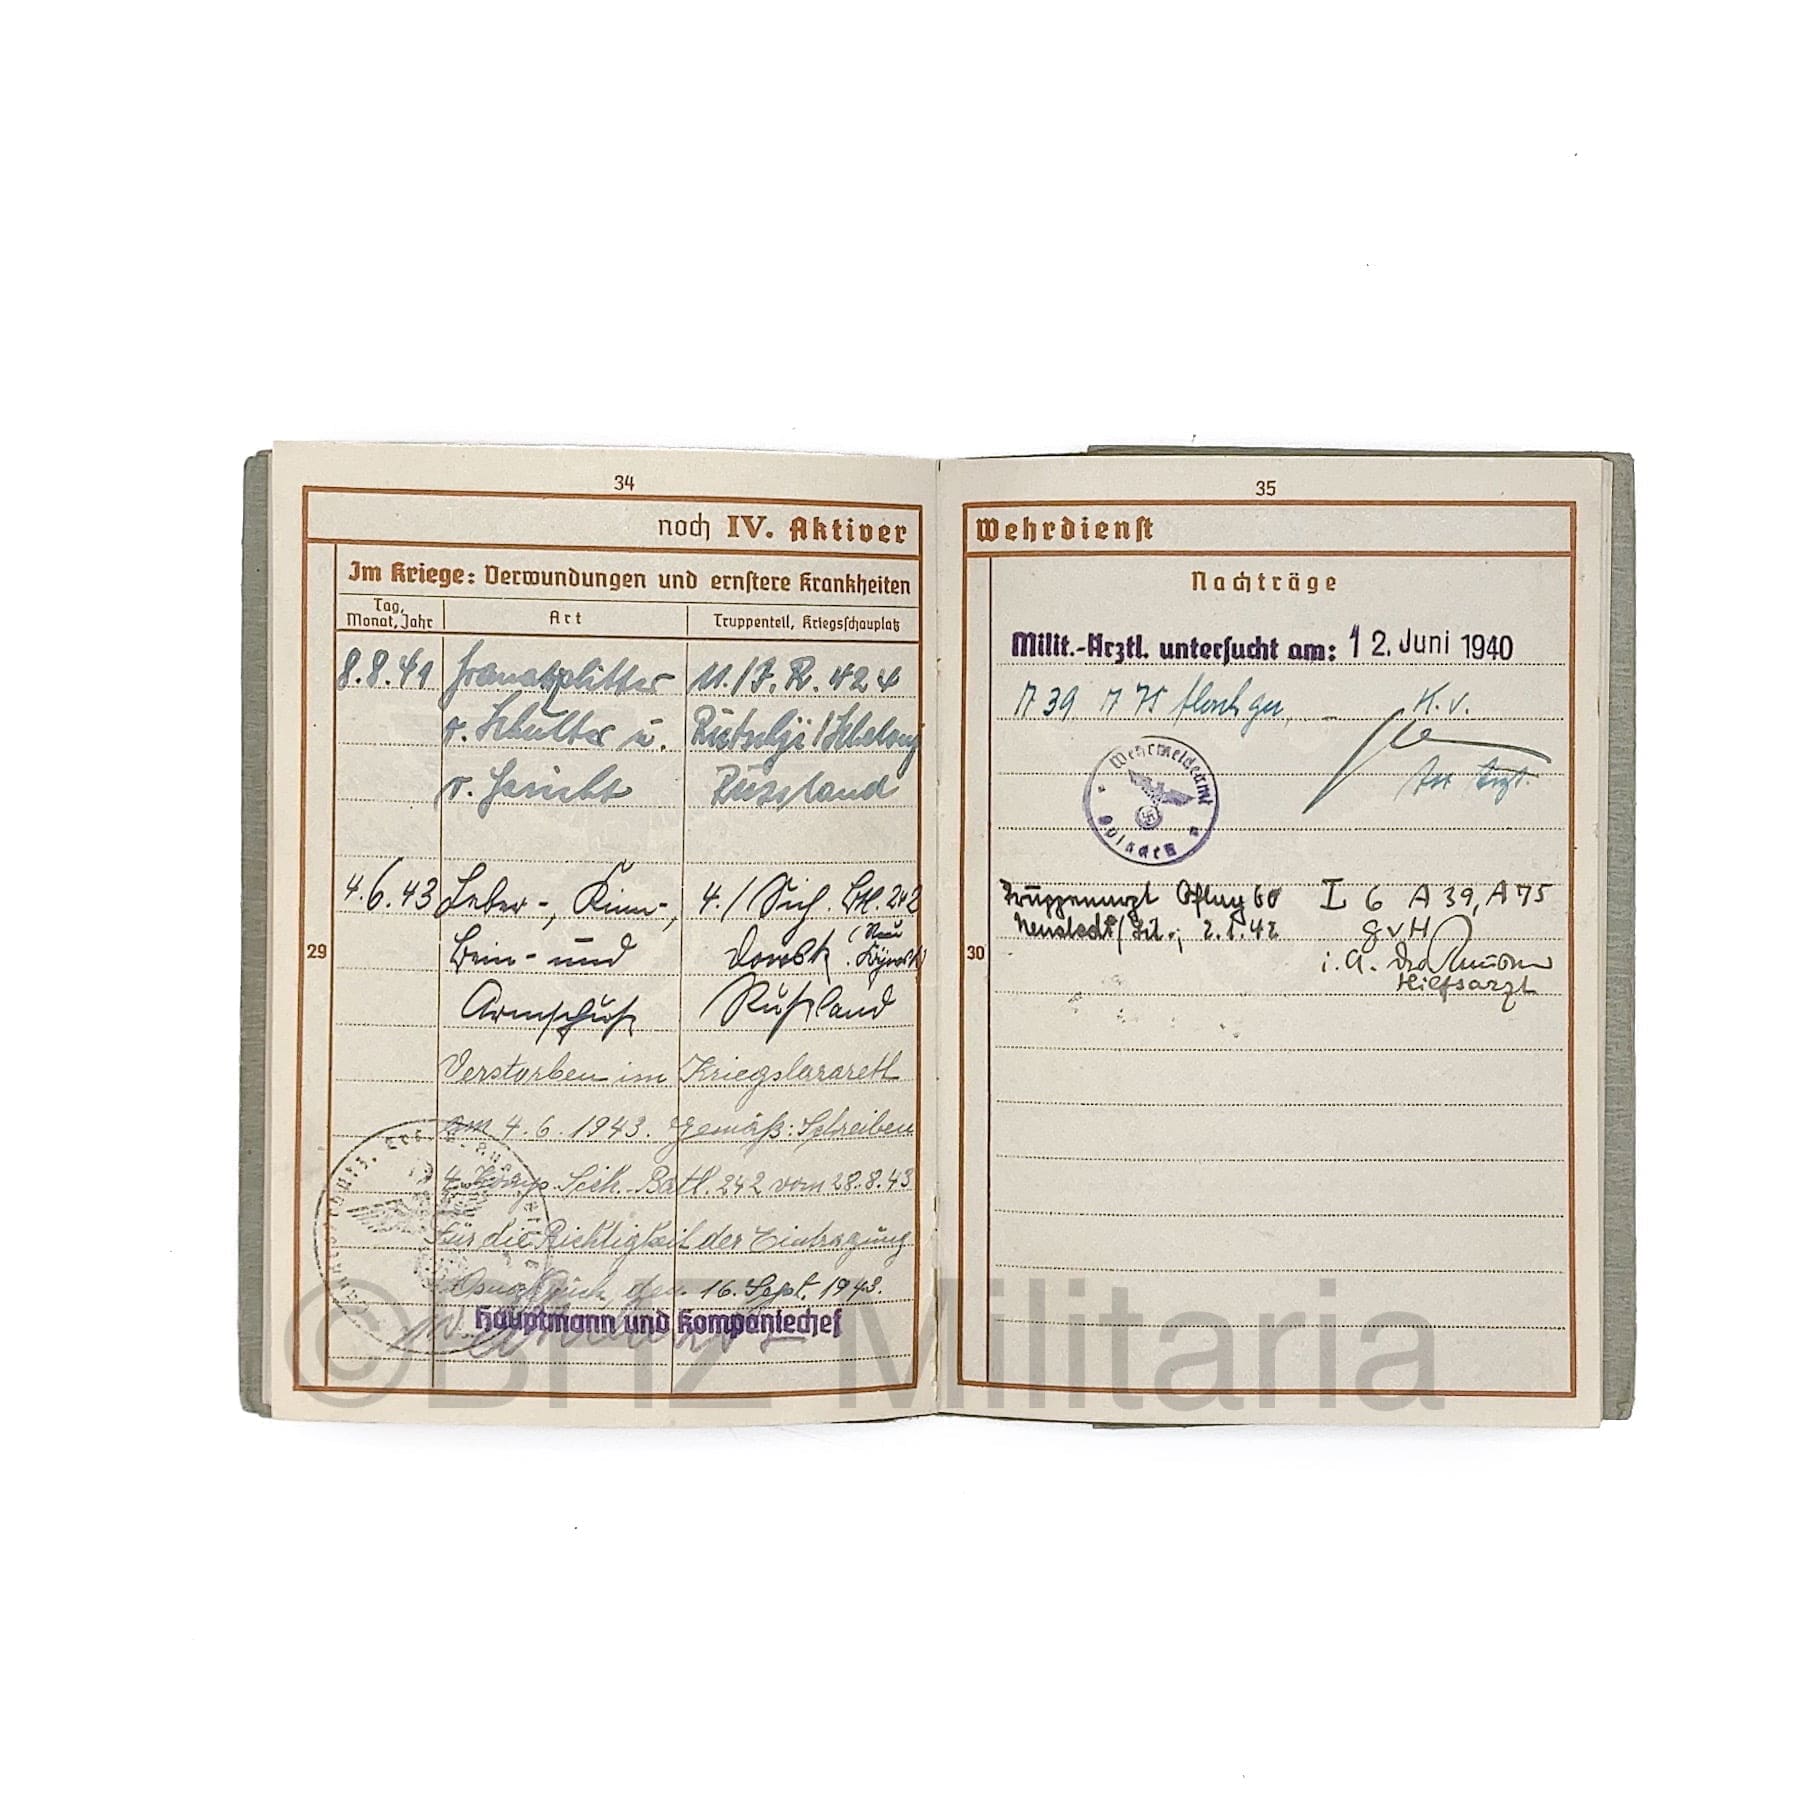 34
noch IV. Aktiver
Im Kriege: Verwundungen und ernstere Krankheiten
Tag, Monat, Jahr
Art
Truppenteil, Kriegsschauplatz
8.8.41 Granatsplitter 11./J.R. 424
r. Schulter u.
r. Gesicht Russland
4.6.43 Leber-, Kinn-, 4./Sich. Btl. 242
Bein- und
Armschuß Rußland
29
Verstorben im Kriegslazarett
am 4.6.1943. Gemäß: Schreiben
4. Komp. Sich.-Batl. 242 vom 28.8.43
Für die Richtigkeit der Eintragung
Osnabrück, den 16. Sept. 1943.
Hauptmann und Kompaniechef
35
Wehrdienst
Nachträge
Milit.-Ärztl. untersucht am: 12. Juni 1940
A 39 A 75 k.v.
Wehrmeldeamt
Truppenarzt 60 I 6 A 39, A 75
Neustadt 2.1.42 gvH
i.A.
Hilfsarzt
30
©BHZ Militaria